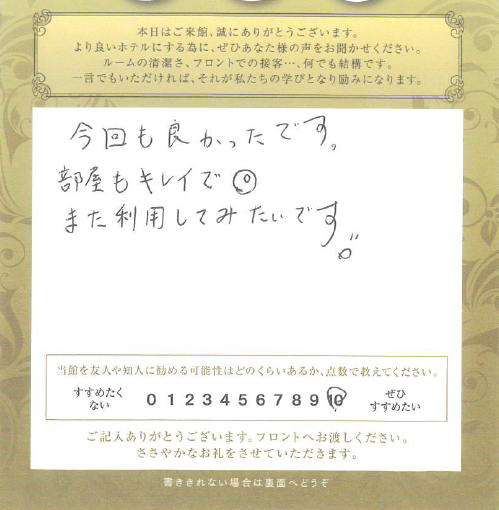 本日はご来館、誠にありがとうございます。
より良いホテルにする為に、ぜひあなた様の声をお聞かせください。
ルームの清潔さ、フロントでの接客…、何でも結構です。
一言でもいただければ、それが私たちの学びとなり励みになります。
今回も良かったです。
部屋もキレイで◎
また利用してみたいです。
当館を友人や知人に勧める可能性はどのくらいあるか、点数で教えてください。
すすめたくない 0 1 2 3 4 5 6 7 8 9 10 ぜひすすめたい
ご記入ありがとうございます。フロントへお渡しください。
ささやかなお礼をさせていただきます。
書ききれない場合は裏面へどうぞ